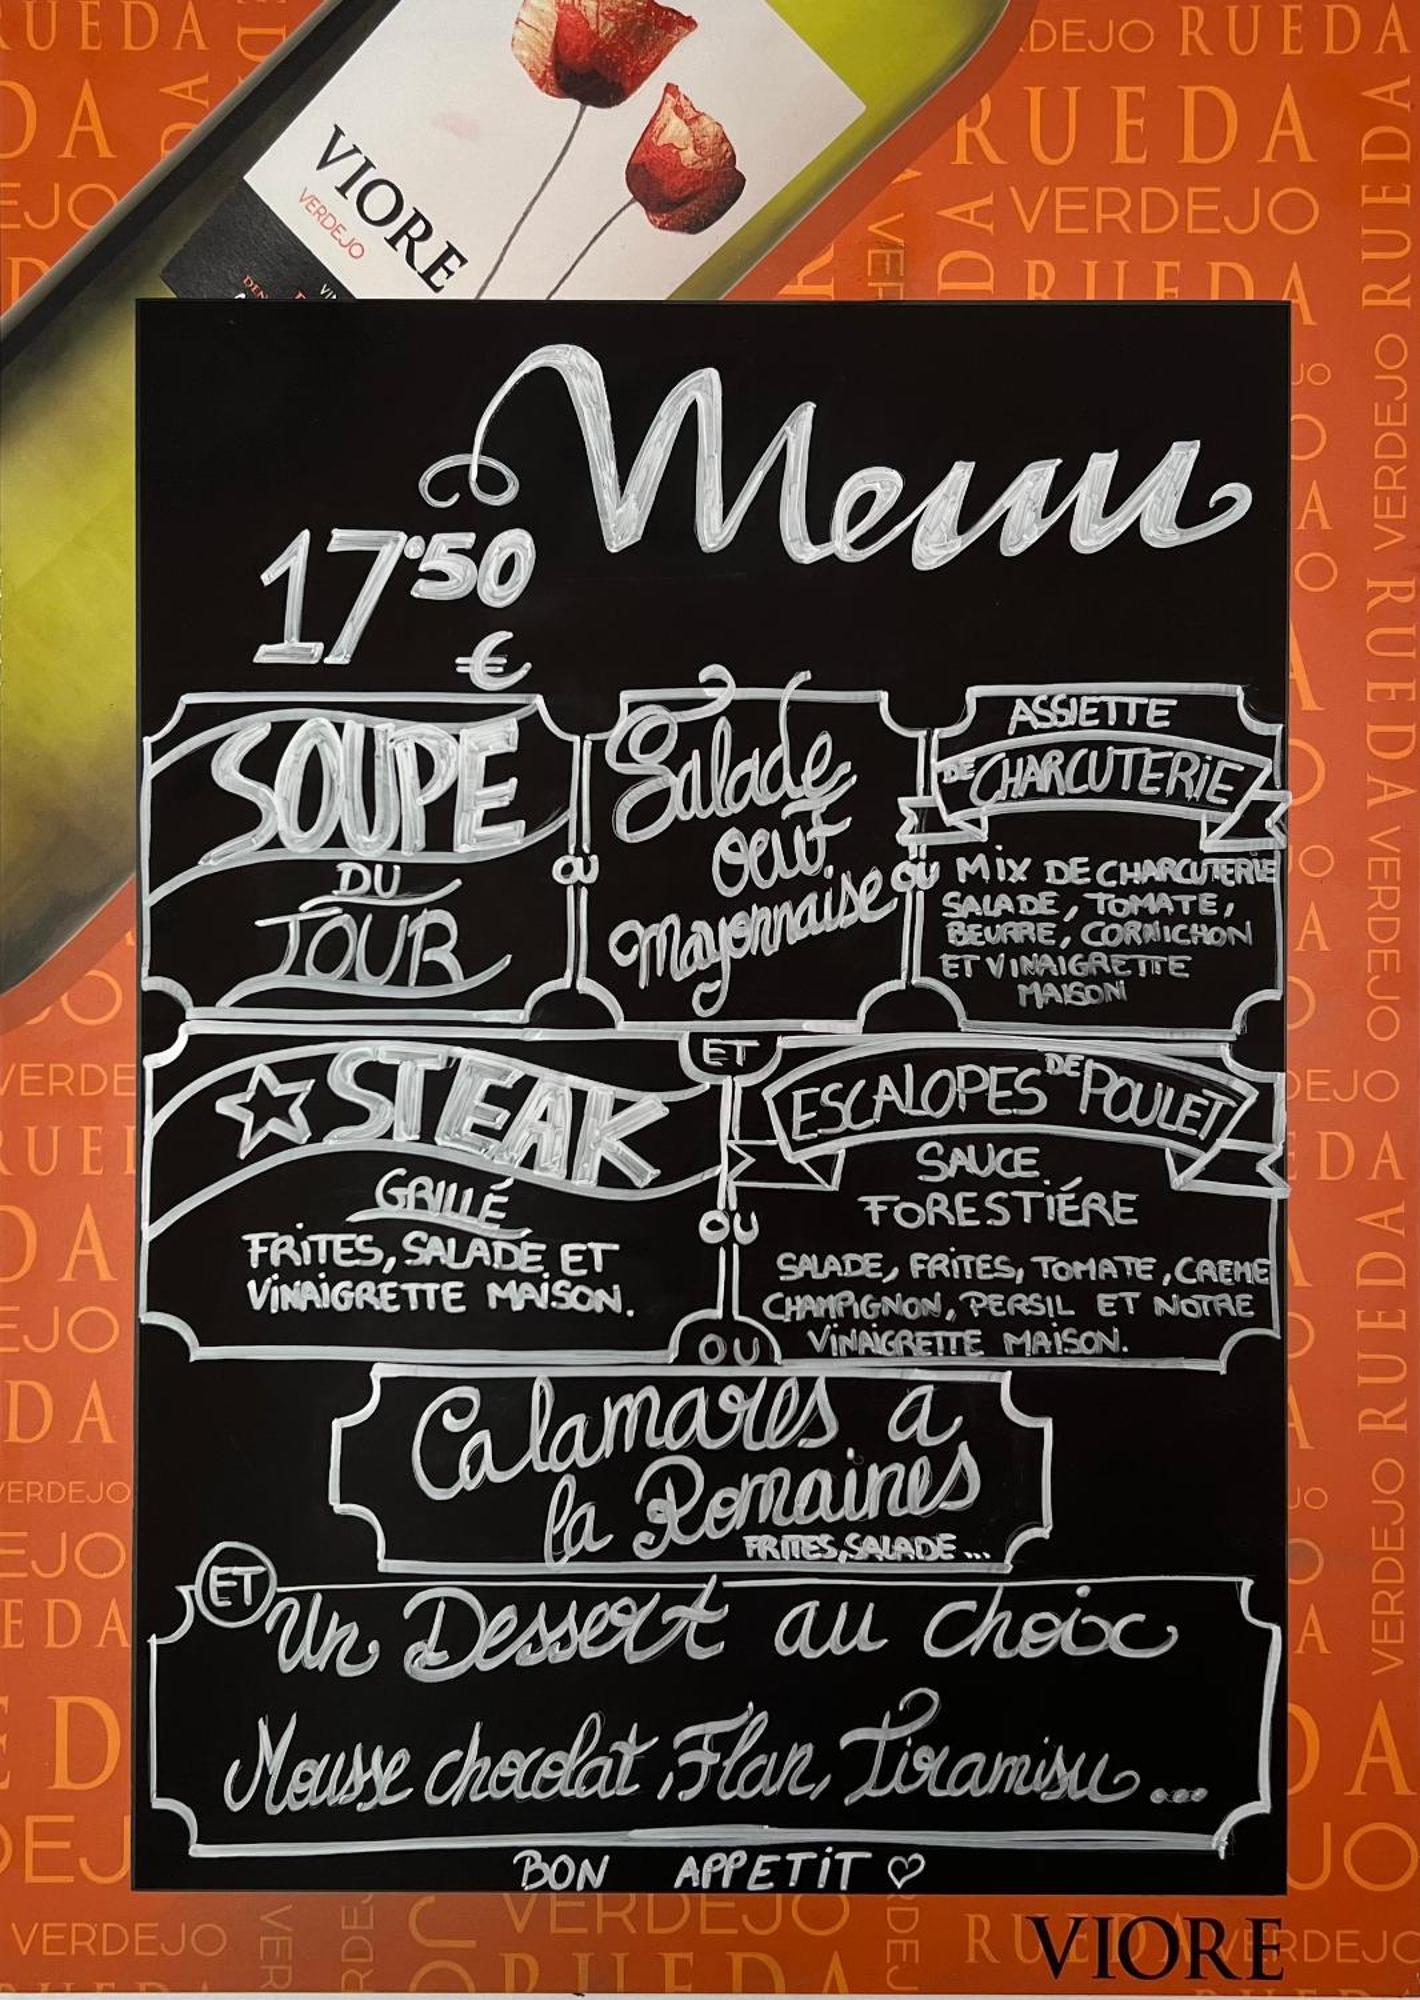 VIORE
VERDEJO
Menu
17'50
€
SOUPE
DU
JOUR
OU
Salade
oeuf
Mayonnaise
OU
ASSIETTE
DE CHARCUTERIE
MIX DE CHARCUTERIE
SALADE, TOMATE,
BEURRE, CORNICHON
ET VINAIGRETTE
MAISON
ET
STEAK
GRILLÉ
FRITES, SALADE ET
VINAIGRETTE MAISON.
OU
ESCALOPES DE POULET
SAUCE
FORESTIÉRE
SALADE, FRITES, TOMATE, CREME
CHAMPIGNON, PERSIL ET NOTRE
VINAIGRETTE MAISON.
OU
Calamares a
la Romaines
FRITES, SALADE...
ET
Un Dessert au choix
Mousse chocolat, Flan, Tiramisu...
BON APPETIT ♡
VERDEJO RUEDA
RUEDA
VERDEJO
RUEDA
VERDEJO
VERDEJO
RUEDA VERDEJO
VIORE